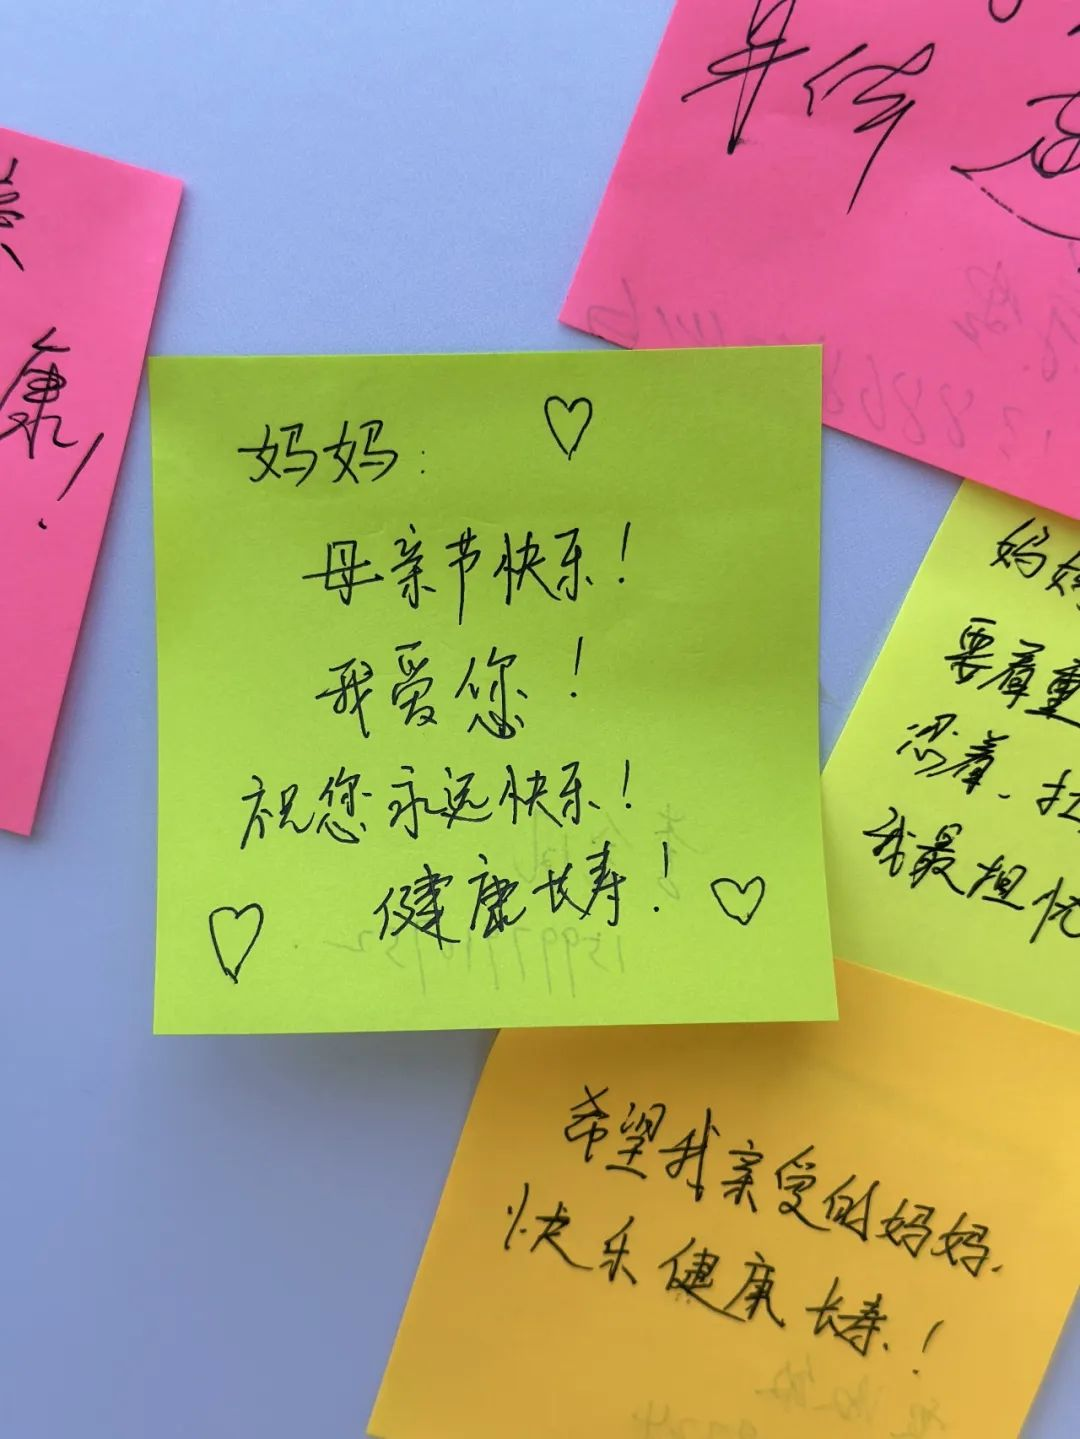 身体
康!
妈妈:
母亲节快乐!
我爱您!
祝您永远快乐!
健康长寿!
妈妈
要着重
忍着、
我最担忧
希望我亲爱的妈妈、
快乐健康长寿!